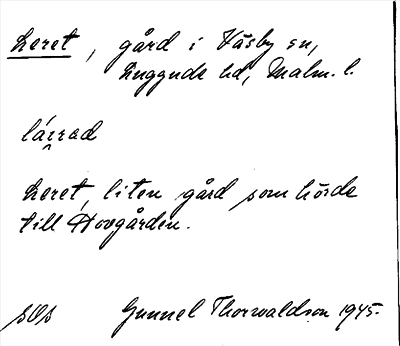 Leret, gård i Väsby sn,
Luggude hd, Malm. l.
lérrad
Leret, liten gård som hörde
till Hovgården.
sOs Gunnel Thorwaldson 1945.